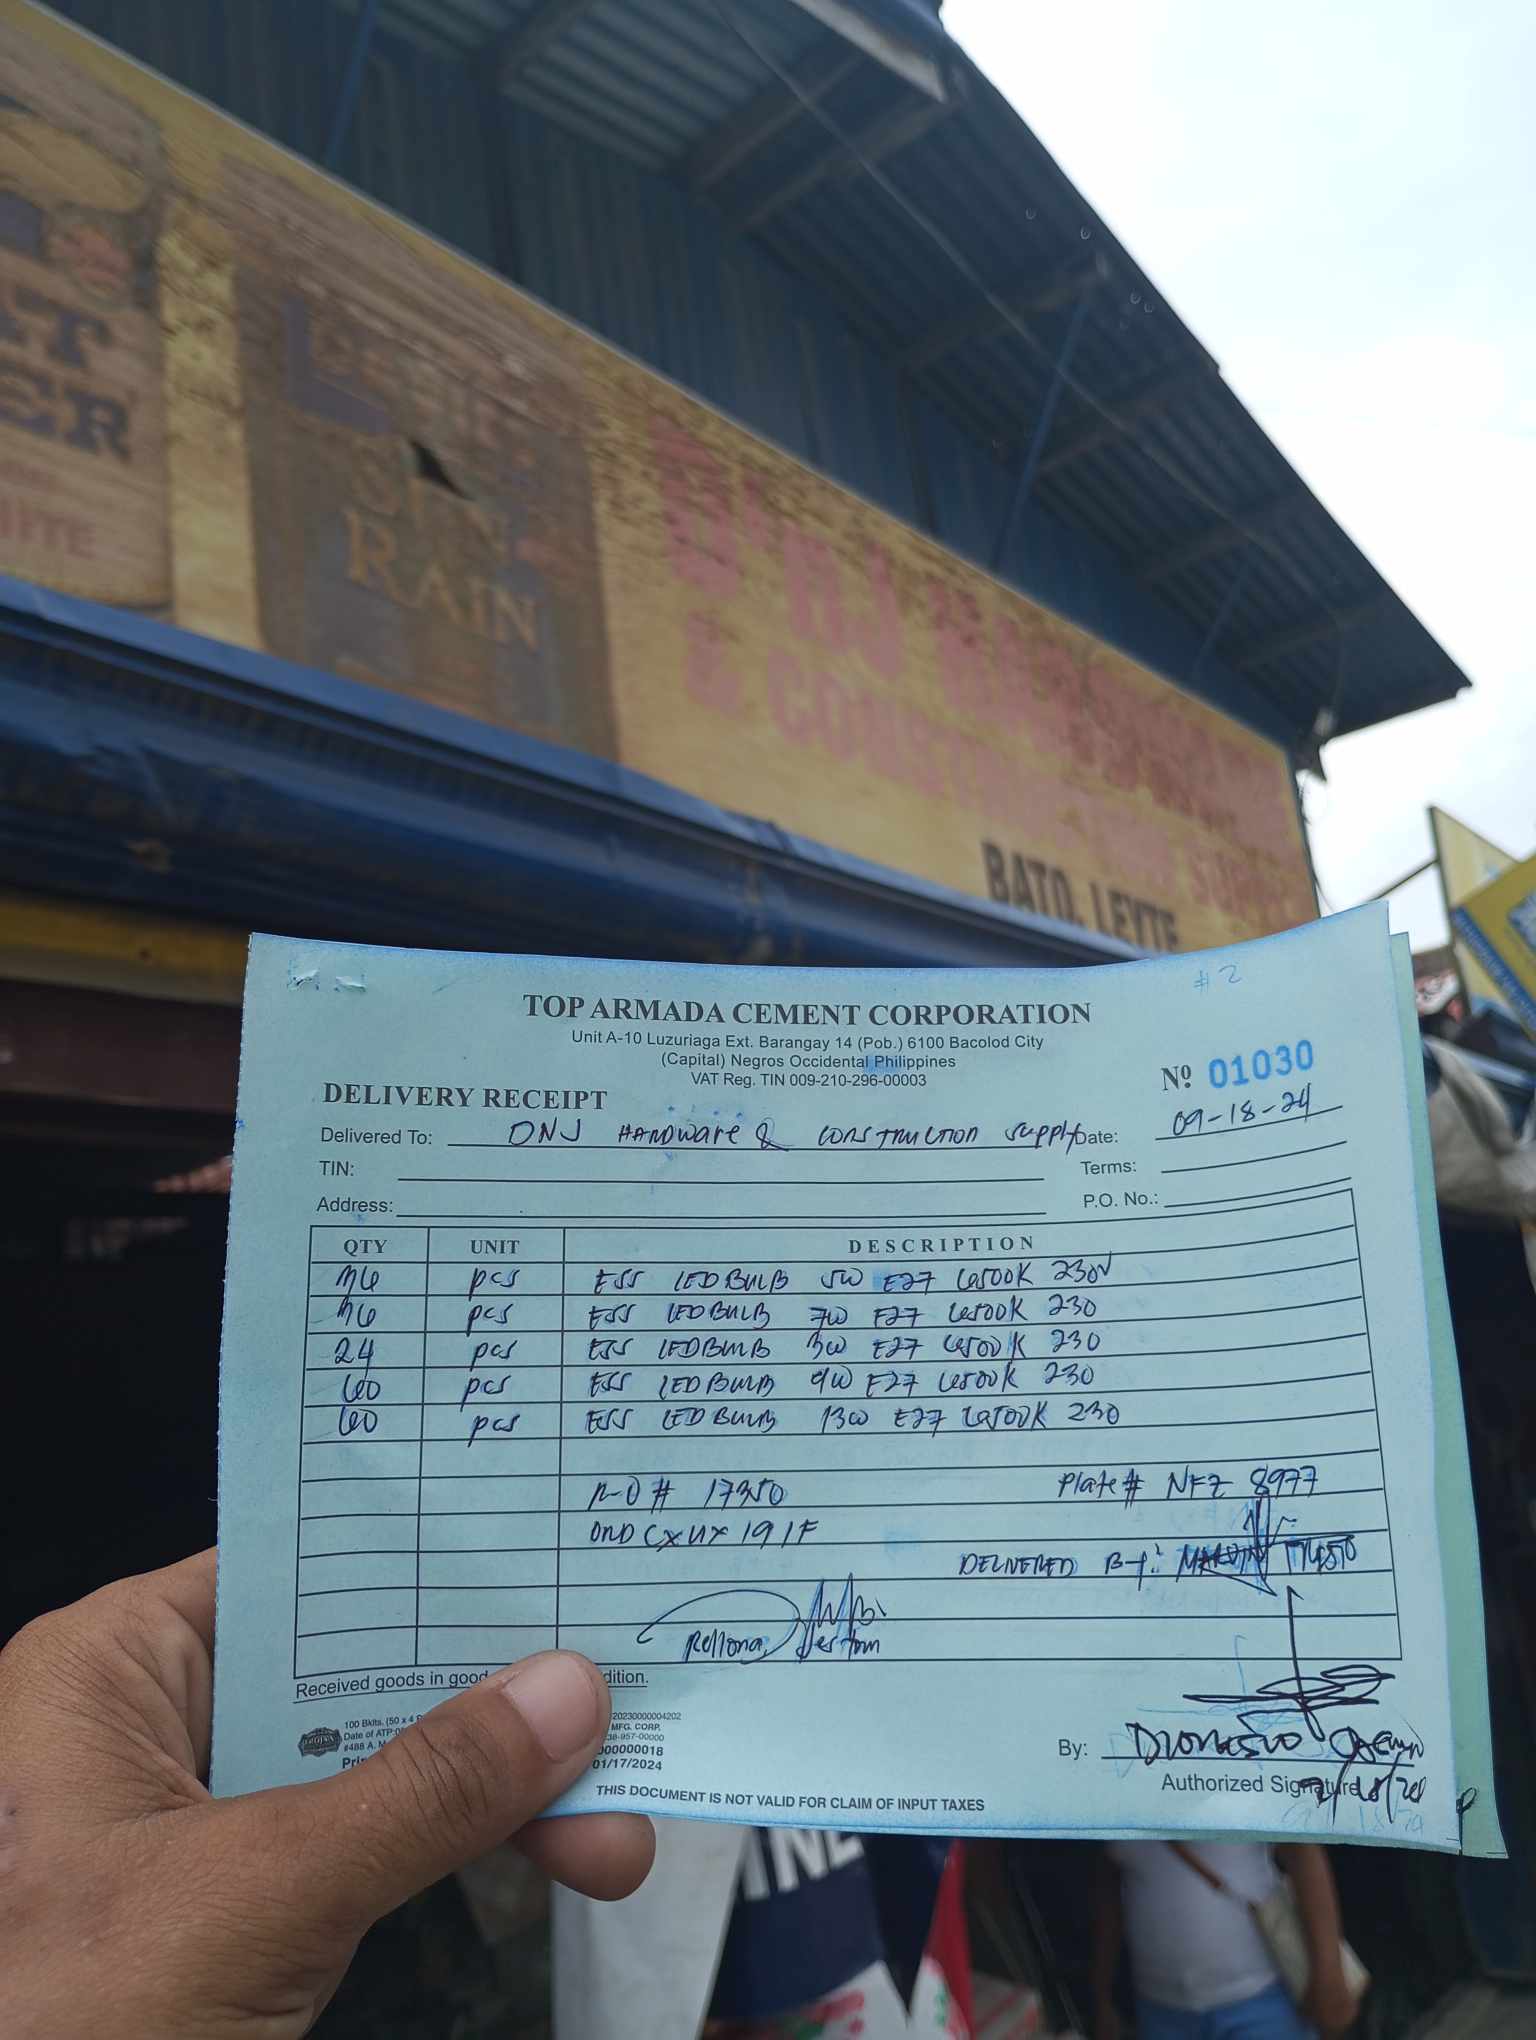 SUN
RAIN
BATO, LEYTE
# 2
TOP ARMADA CEMENT CORPORATION
Unit A-10 Luzuriaga Ext. Barangay 14 (Pob.) 6100 Bacolod City
(Capital) Negros Occidental Philippines
VAT Reg. TIN 009-210-296-00003
Nº 01030
DELIVERY RECEIPT
Delivered To: DNJ HARDWARE & CONSTRUCTION SUPPLY Date: 09-18-24
TIN: Terms:
Address: P.O. No.:
QTY UNIT DESCRIPTION
36 pcs ESS LED BULB 5W E27 6500K 230V
36 pcs ESS LED BULB 7W E27 6500K 230
24 pcs ESS LED BULB 3W E27 6500K 230
60 pcs ESS LED BULB 9W E27 6500K 230
60 pcs ESS LED BULB 13W E27 6500K 230
# 17350 Plate # NFZ 8977
DELIVERED BY:
Received goods in good
100 Bklts. (50 x 4
Date of ATP:
20230000004202
MFG. CORP.
01/17/2024
THIS DOCUMENT IS NOT VALID FOR CLAIM OF INPUT TAXES
By: DIONESIO
Authorized Signature